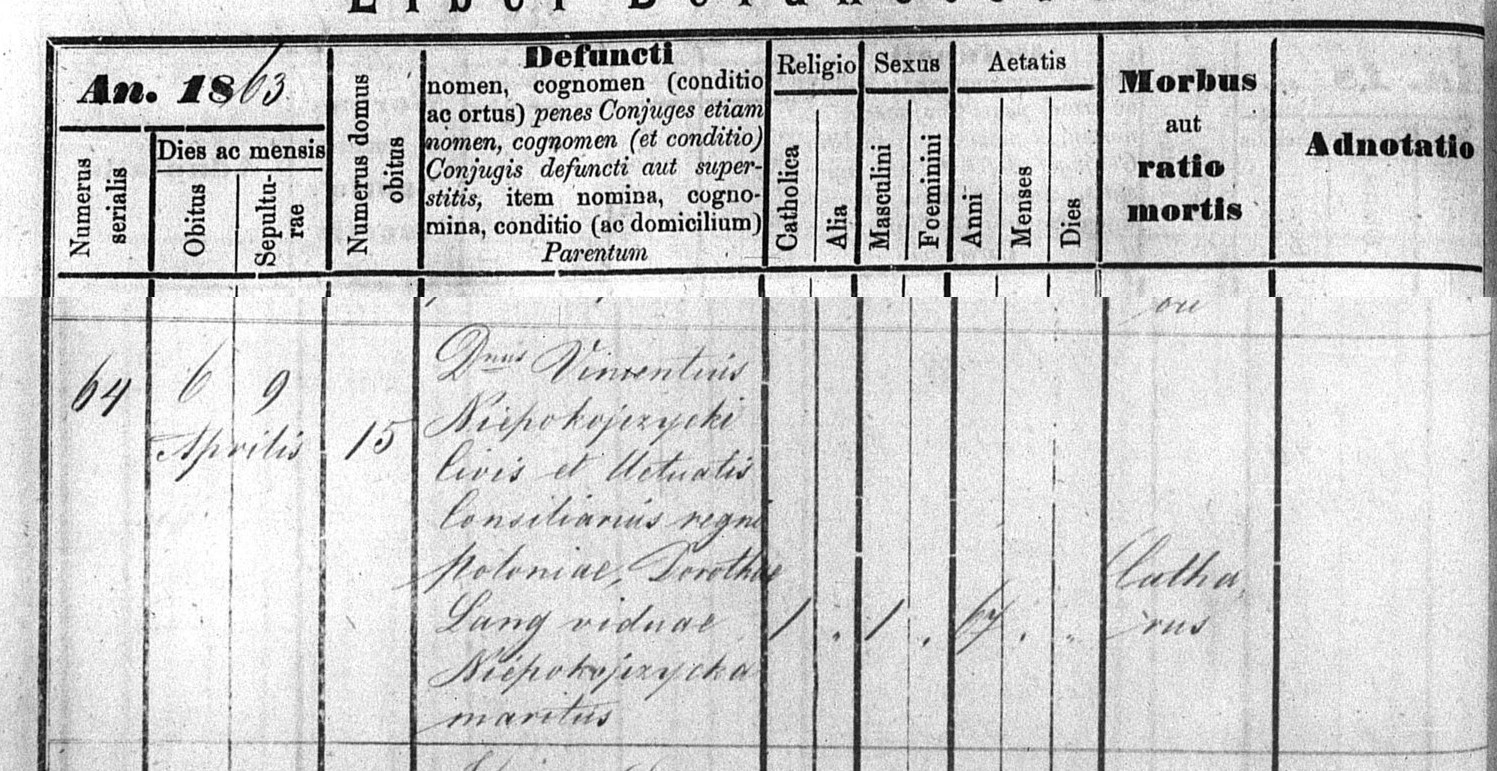 An. 1863
Numerus serialis
Dies ac mensis
Obitus
Sepultu-
rae
Numerus domus
obitus
Defuncti
nomen, cognomen (conditio
ac ortus) penes Conjuges etiam
nomen, cognomen (et conditio)
Conjugis defuncti aut super-
stitis, item nomina, cogno-
mina, conditio (ac domicilium)
Parentum
Religio
Catholica
Alia
Sexus
Masculini
Foeminini
Aetatis
Anni
Menses
Dies
Morbus
aut
ratio
mortis
Adnotatio
64
6 9
Aprilis
15
Dnus Vincentius
Niepokojczycki
Civis et Actualis
Consiliarius regni
Poloniae, Dorothae
Lang viduae
Niepokojczycka
maritus
1 " 1 " 67 " "
Catha,
rus